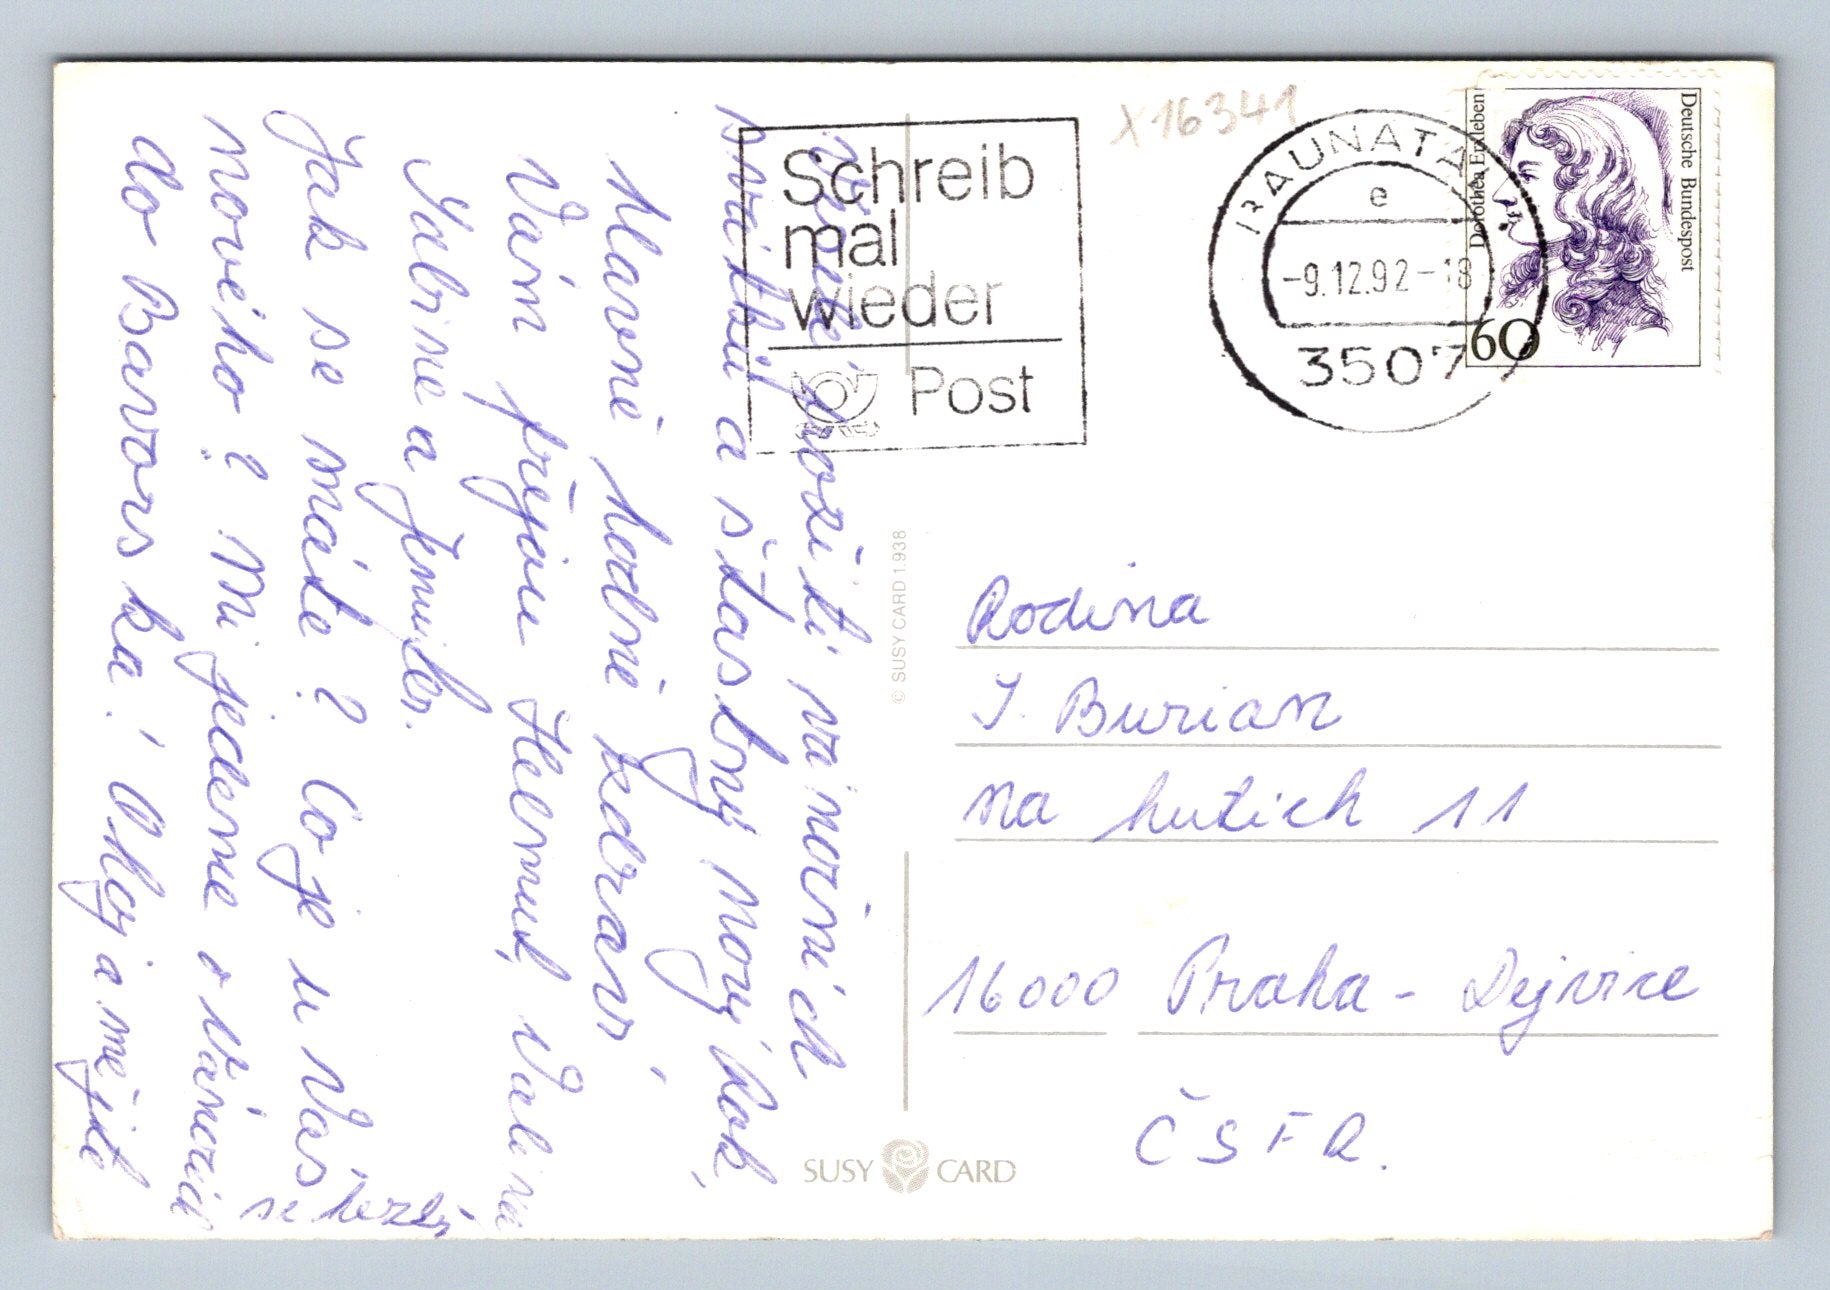 Veselé prožití vánočních
svátků a šťastný nový rok,
Hlavně hodně zdraví
Vám přejou Helmut, Valina
Sabine a Jennifer.
Jak se máte? Co je u Vás
nového? Mi jedeme o Vánocích
do Bavorska! Ahoj a mějte
se hezky
Schreib
mal
wieder
Post
X16341
BAUNATAL
e
-9.12.92-18
3507
Deutsche Bundespost
Dorothea Erxleben
60
© SUSY CARD 1.938
Rodina
J. Burian
na hutích 11
16000 Praha - Dejvice
ČSFR.
SUSY CARD